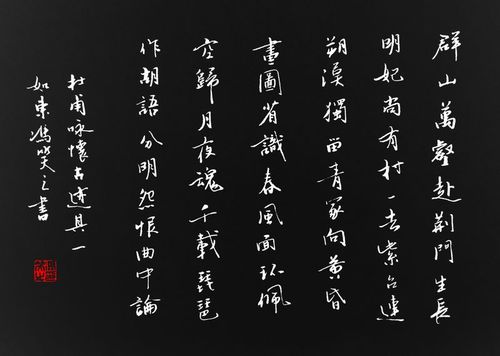 群山萬壑赴荆門生長
明妃尚有村一去紫台連
朔漠獨留青冢向黃昏
畫圖省識春風面环佩
空歸月夜魂千載琵琶
作胡語分明怨恨曲中論
杜甫咏懷古迹其一
如東馮笑之書